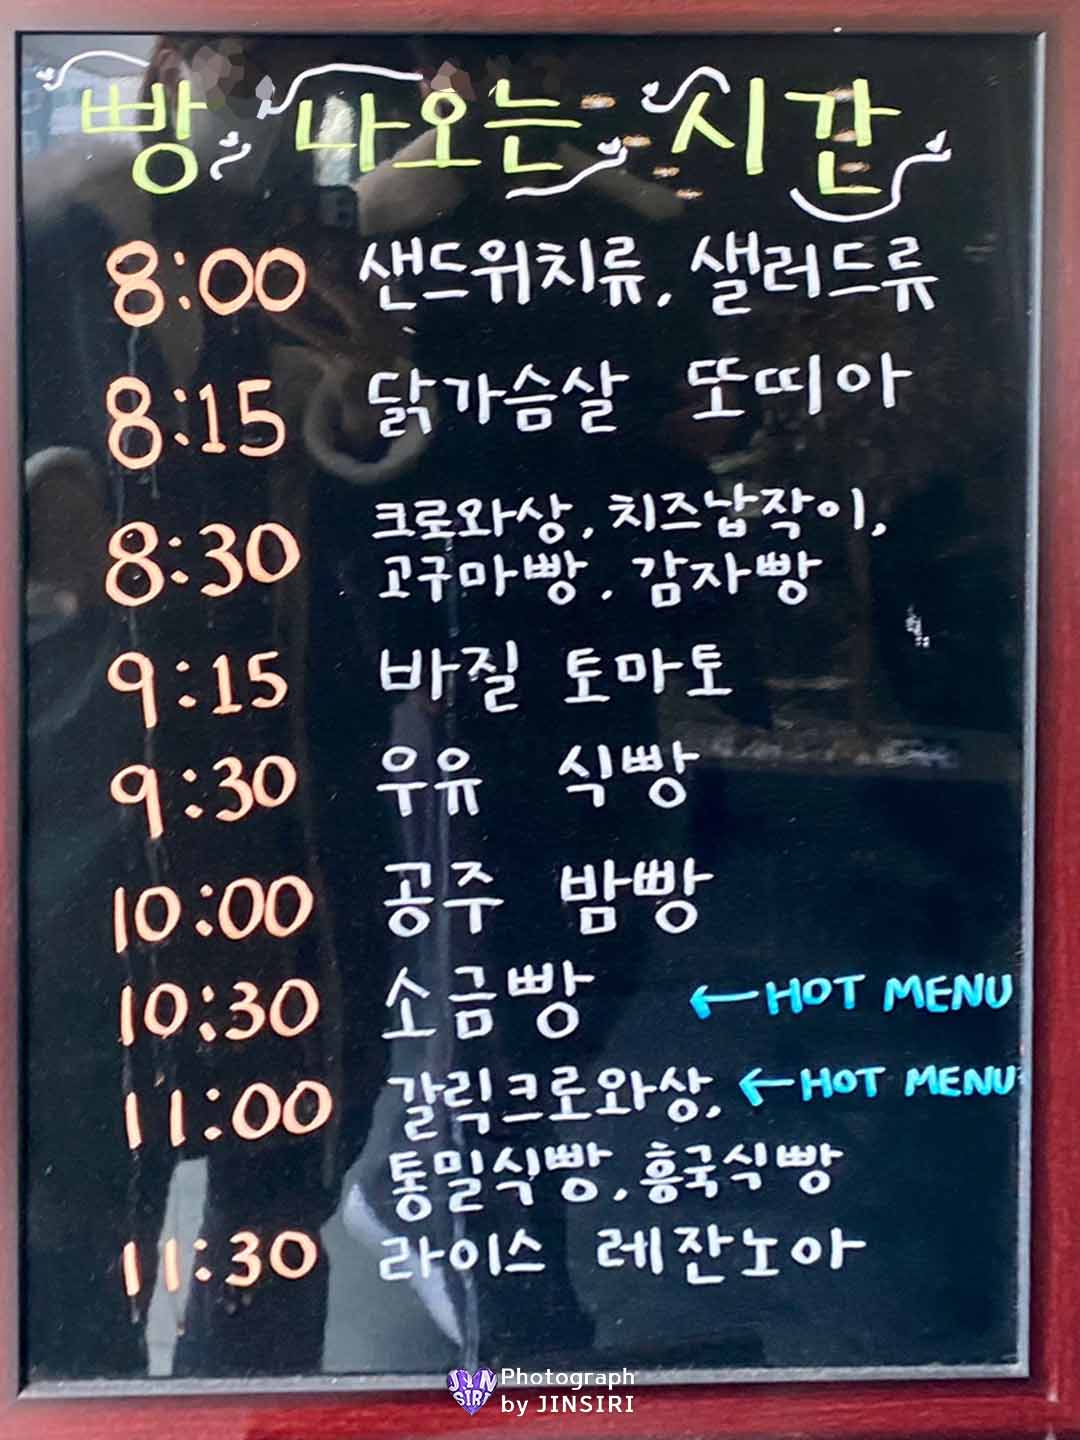 빵 나오는 시간
8:00 샌드위치류, 샐러드류
8:15 닭가슴살 또띠아
8:30 크로와상, 치즈납작이,
고구마빵, 감자빵
9:15 바질 토마토
9:30 우유 식빵
10:00 공주 밤빵
10:30 소금빵 ←HOT MENU
11:00 갈릭크로와상, ←HOT MENU
통밀식빵, 흥국식빵
11:30 라이스 레잔노아
JIN SIRI Photograph
by JINSIRI